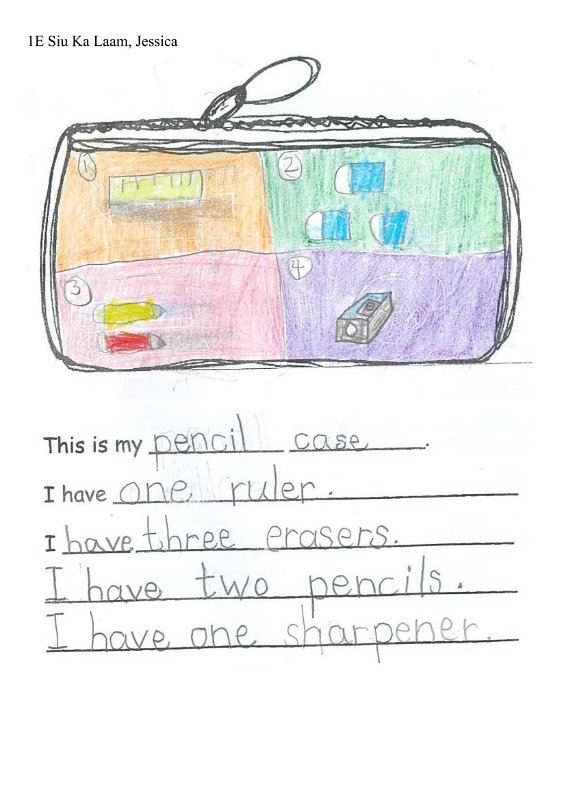 1E Siu Ka Laam, Jessica
1
2
3
4
This is my pencil case.
I have one ruler.
I have three erasers.
I have two pencils.
I have one sharpener.